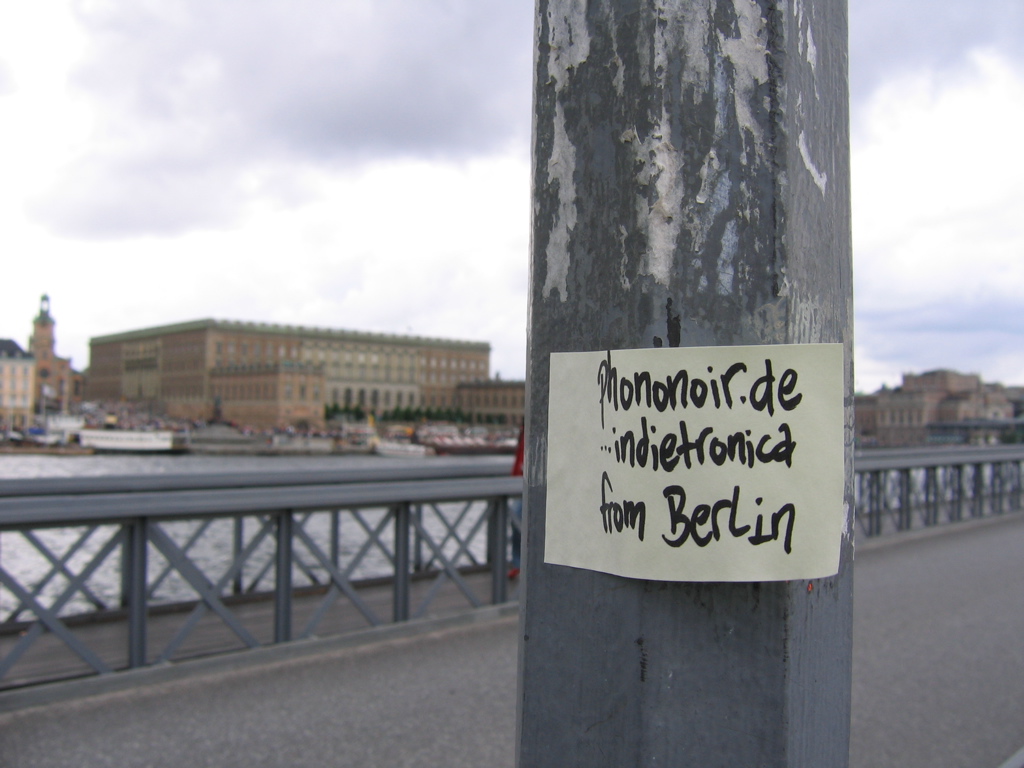 phononoir.de
...indietronica
from Berlin